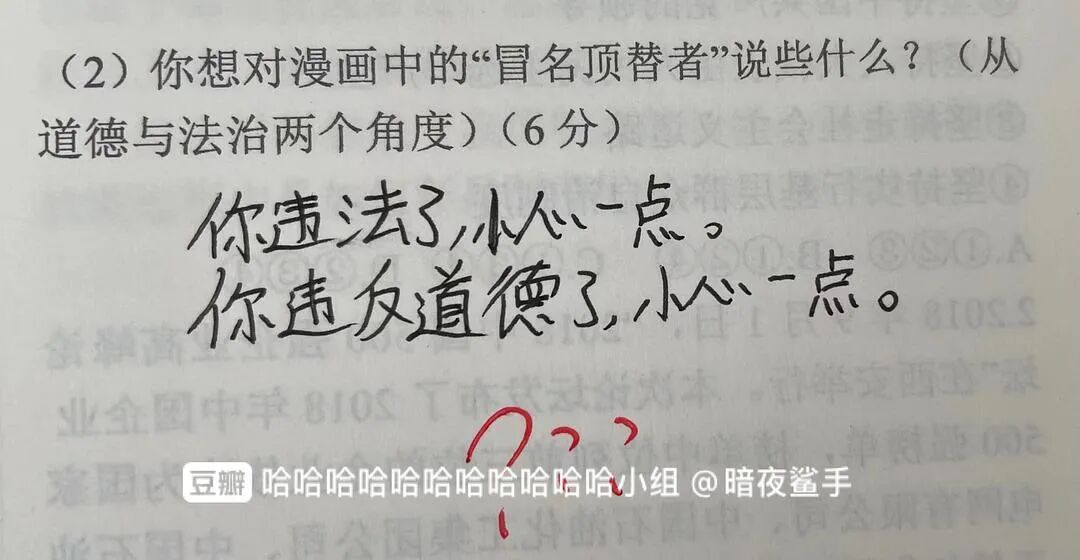 （2）你想对漫画中的“冒名顶替者”说些什么？（从
道德与法治两个角度）（6 分）
你违法了,小心一点。
你违反道德了,小心一点。
???
豆瓣 哈哈哈哈哈哈哈哈哈哈哈小组 @暗夜鲨手